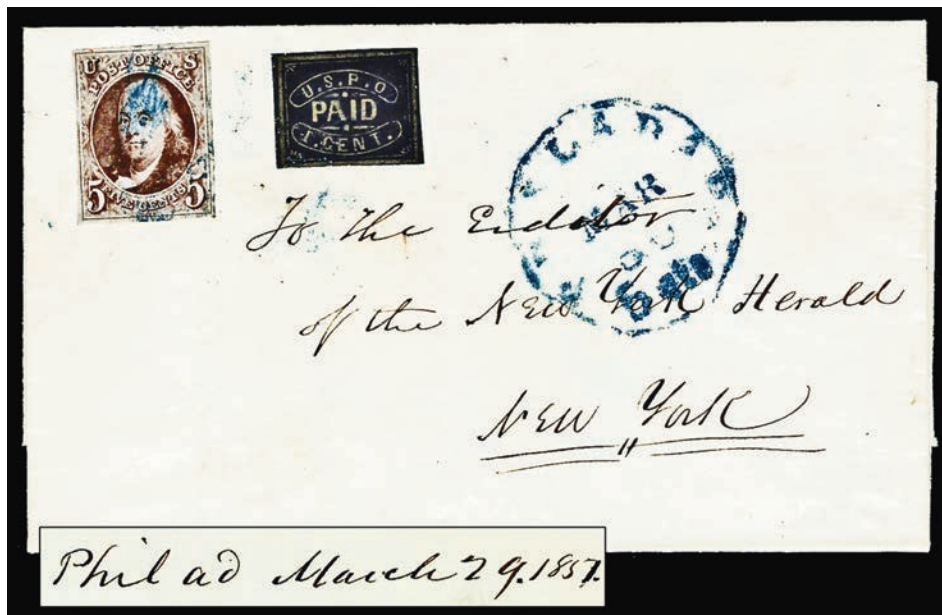 U S
POST OFFICE
5 FIVE CENTS 5
U.S.P.O.
PAID
1.CENT.
MAR
To the Enditor
of the New York Herald
New York
Philad March 29. 1851.